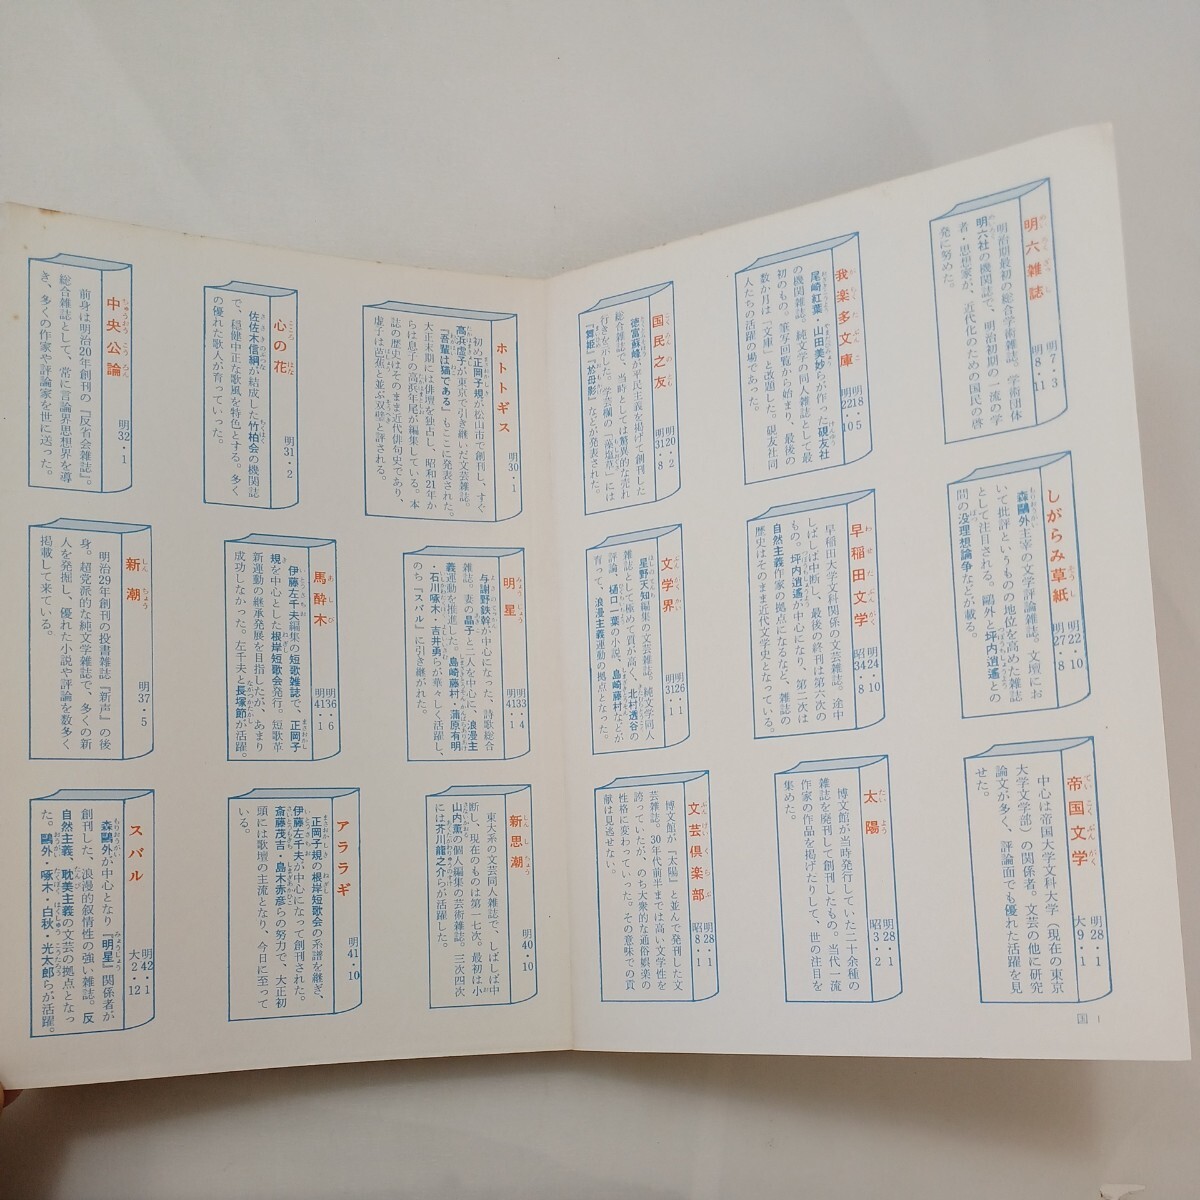 明六雑誌
明7・3
明8・11
明治期最初の総合学術雑誌。学術団体
明六社の機関誌で、明治初期の一流の学
者・思想家が、近代化のための国民の啓
発に努めた。
しがらみ草紙
明22・10
明27・8
森鷗外主宰の文学評論雑誌。文壇にお
いて批評というものの地位を高めた雑誌
として注目される。鷗外と坪内逍遙との
間の没理想論争などが載る。
帝国文学
明28・1
大9・1
中心は帝国大学文科大学（現在の東京
大学文学部）の関係者。文芸の他に研究
論文が多く、評論面でも優れた活躍を見
せた。
我楽多文庫
明18・5
明22・10
尾崎紅葉、山田美妙らが作った硯友社
の機関雑誌。純文学の同人雑誌として最
初のもの。筆写回覧から始まり、最後の
数か月は「文庫」と改題した。硯友社同
人たちの活躍の場であった。
早稲田文学
明24・10
昭34・8
早稲田大学文科関係の文芸雑誌。途中
しばしば中断し、最後の終刊は第六次の
もの。坪内逍遙が中心になり、第二次は
自然主義作家の拠点になるなど、雑誌の
歴史はそのまま近代文学史となっている。
太陽
明28・1
昭3・2
博文館が当時発行していた二十余種の
雑誌を廃刊して創刊したもの。当代一流
作家の作品を掲げたりして、世の注目を
集めた。
国民之友
明20・2
明31・8
徳富蘇峰が平民主義を掲げて創刊した
総合雑誌で、当時としては驚異的な売れ
行きを示した。学芸欄の「藻塩草」には
『舞姫』『於母影』などが発表された。
文学界
明26・1
明31・1
星野天知編集の文芸雑誌。純文学同人
雑誌として極めて質が高く、北村透谷の
評論、樋口一葉の小説、島崎藤村などが
育って、浪漫主義運動の拠点となった。
文芸倶楽部
明28・1
昭8・1
博文館が『太陽』と並んで発刊した文
芸雑誌。30年代前半までは高い文学性を
誇っていたが、のち大衆的な通俗娯楽の
性格に変わっていった。その意味での貢
献は見逃せない。
国 1
ホトトギス
明30・1
初め正岡子規が松山市で創刊し、すぐ
高浜虚子が東京で引き継いだ文芸雑誌。
『吾輩は猫である』もここに発表された。
大正末期には俳壇を独占し、昭和21年か
らは息子の高浜年尾が編集している。本
誌の歴史はそのまま近代俳句史であり、
虚子は芭蕉と並ぶ双璧と評される。
明星
明33・4
明41・1
与謝野鉄幹が中心になった、詩歌総合
雑誌。妻の晶子と二人を中心に、浪漫主
義運動を推進した。島崎藤村・蒲原有明
・石川啄木・吉井勇らが華々しく活躍し、
のち『スバル』に引き継がれた。
新思潮
明40・10
東大系の文芸同人雑誌で、しばしば中
断し、現在のものは第一七次。最初は小
山内薫の個人編集の芸術雑誌。三次四次
には芥川龍之介らが活躍した。
心の花
明31・2
佐佐木信綱が結成した竹柏会の機関誌
で、穏健中正な歌風を特色とする。多く
の優れた歌人が育っていった。
馬酔木
明36・6
明41・1
伊藤左千夫編集の短歌雑誌で、正岡子
規を中心とした根岸短歌会発行。短歌革
新運動の継承発展を目指したが、あまり
成功しなかった。左千夫と長塚節が活躍。
アララギ
明41・10
正岡子規の根岸短歌会の系譜を継ぎ、
伊藤左千夫が中心になって創刊された。
斎藤茂吉・島木赤彦らの努力で、大正初
頭には歌壇の主流となり、今日に至って
いる。
中央公論
明32・1
前身は明治20年創刊の『反省会雑誌』。
総合雑誌として、常に言論界思想界を導
き、多くの作家や評論家を世に送った。
新潮
明37・5
明治29年創刊の投書雑誌『新声』の後
身。超党派的な純文学雑誌で、多くの新
人を発掘し、優れた小説や評論を数多く
掲載して来ている。
スバル
明42・1
大2・12
森鷗外が中心となり『明星』関係者が
創刊した、浪漫的叙情性の強い雑誌。反
自然主義、耽美主義の文芸の拠点となっ
た。鷗外・啄木・白秋・光太郎らが活躍。